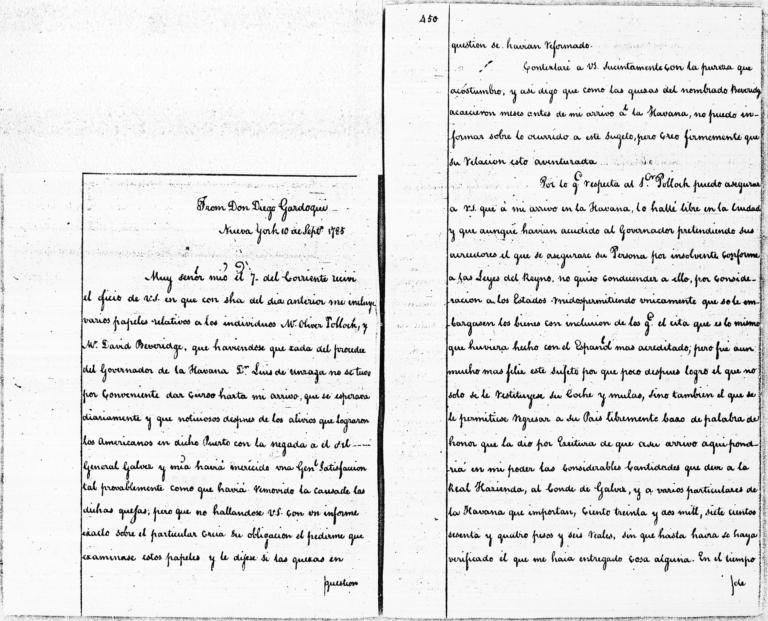 From Don Diego Gardoqui
Nueva York 10 de Septre 1785
Muy señor mio el dia 7. del Corriente recivi
el oficio de V.S. en que con fha del dia anterior me incluye
varios papeles relativos a los individuos Mr. Oliver Pollock, y
Mr. David Beveridge, que haviendose quexado del proceder
del Governador de la Havana Dn. Luis de Unzaga no se tuvo
por Conveniente dar Curso harta mi arrivo, que se esperava
diariamente y que noticiosos despues de los alivios que lograron
los Americanos en dicho Puerto con la llegada a el del
General Galvez y mia havia merecido una Genl. Satisfaccion
tal provablemente como que havia removido la causa de las
dichas quejas; pero que no hallandose V.S. con un informe
exacto sobre el particular creia su obligacion el pedirme que
examinase estos papeles y le dijese si las quexas en
question
450
question se havian reformado.
Contextaré a VS. sucintamente con la pureza que
acóstumbro, y asi digo que como las quexas del nombrado Beveridge
acaecieron meses antes de mi arrivo á la Havana, no puedo in-
formar sobre lo ocurrido a este Sugeto, pero creo firmemente que
su relacion esta aventurada
Por lo qe. respecta al Sor. Pollock puedo asegurar
a V.S. que á mi arrivo en la Havana, lo hallé libre en la Ciudad
y que aunque havian acudido al Governador pretendiendo sus
acreedores el que se asegurase su Persona por insolvente conforme
a las Leyes del Reyno, no quiso condescender a ello, por conside-
racion a los Estados Unidos permitiendo unicamente que se le em-
bargasen los bienes con inclusion de los qe. el cita que es lo mismo
que huviera hecho con el Español mas acreditado; pero fué aun
mucho mas felix este sujeto por que poco despues logró el que no
solo se le restituyese su Coche y mulas, sino tambien el que se
le permitiese regresar a su Pais libremente baxo de palabra de
honor que la dio por Escritura de que a su arrivo aqui pond-
ria en mi poder las considerables Cantidades que deve a la
Real Hazienda, al Conde de Galvez, y a varios particulares de
la Havana que importan, Ciento treinta y dos mill, siete cientos
sesenta y quatro pesos y seis reales, sin que hasta haora se haya
verificado el que me haia entregado cosa alguna. En el tiempo
de